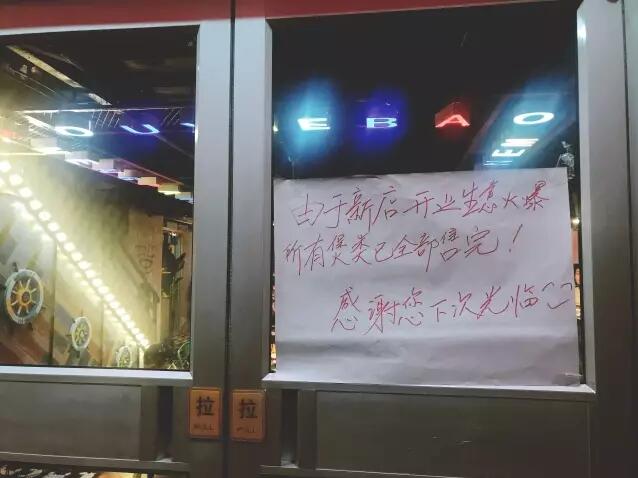 EBAO
由于新店开业生意火爆
所有煲类已全部售完！
感谢您下次光临
拉
拉